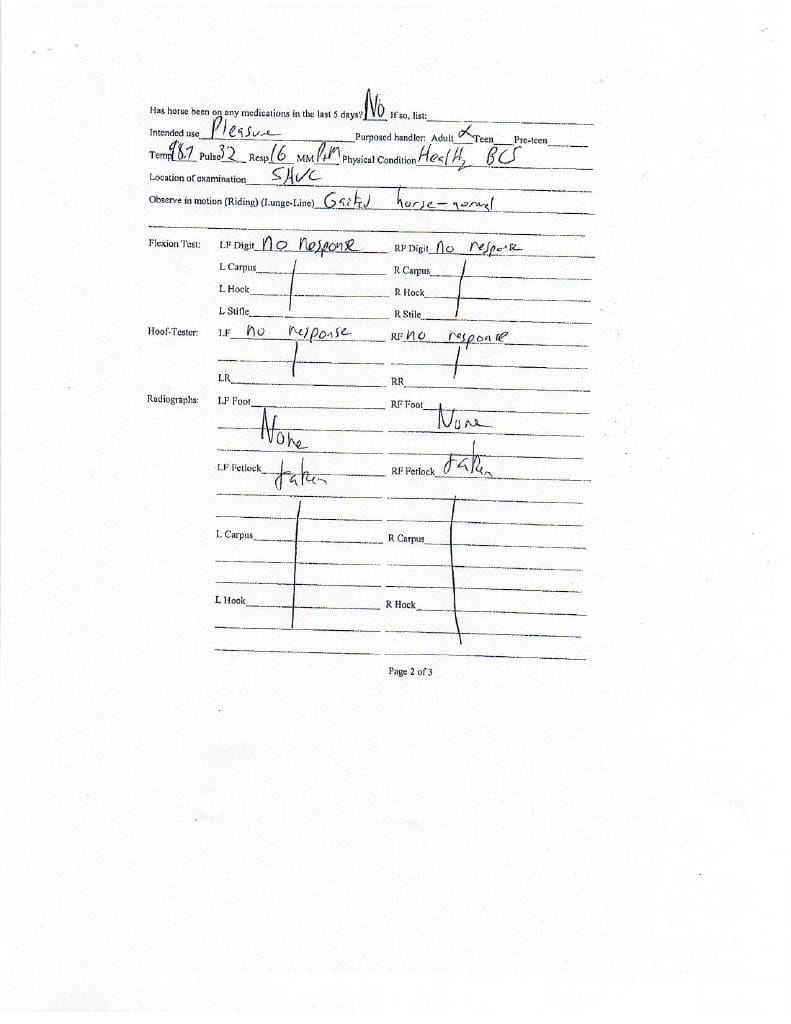 Has horse been on any medications in the last 5 days? No If so, list:
Intended use Pleasure Purposed handler: Adult x Teen Pre-teen
Temp 98.7 Pulse 32 Resp 16 MM P+M Physical Condition Healthy BCS
Location of examination SHVC
Observe in motion (Riding) (Lunge-Line) Gaited horse-normal
Flexion Test: LF Digit No Response RF Digit No response
L Carpus R Carpus
L Hock R Hock
L Stifle R Stile
Hoof-Tester: LF no response RF no response
LR RR
Radiographs: LF Foot RF Foot
None None
LF Fetlock taken RF Fetlock taken
L Carpus R Carpus
L Hock R Hock
Page 2 of 3